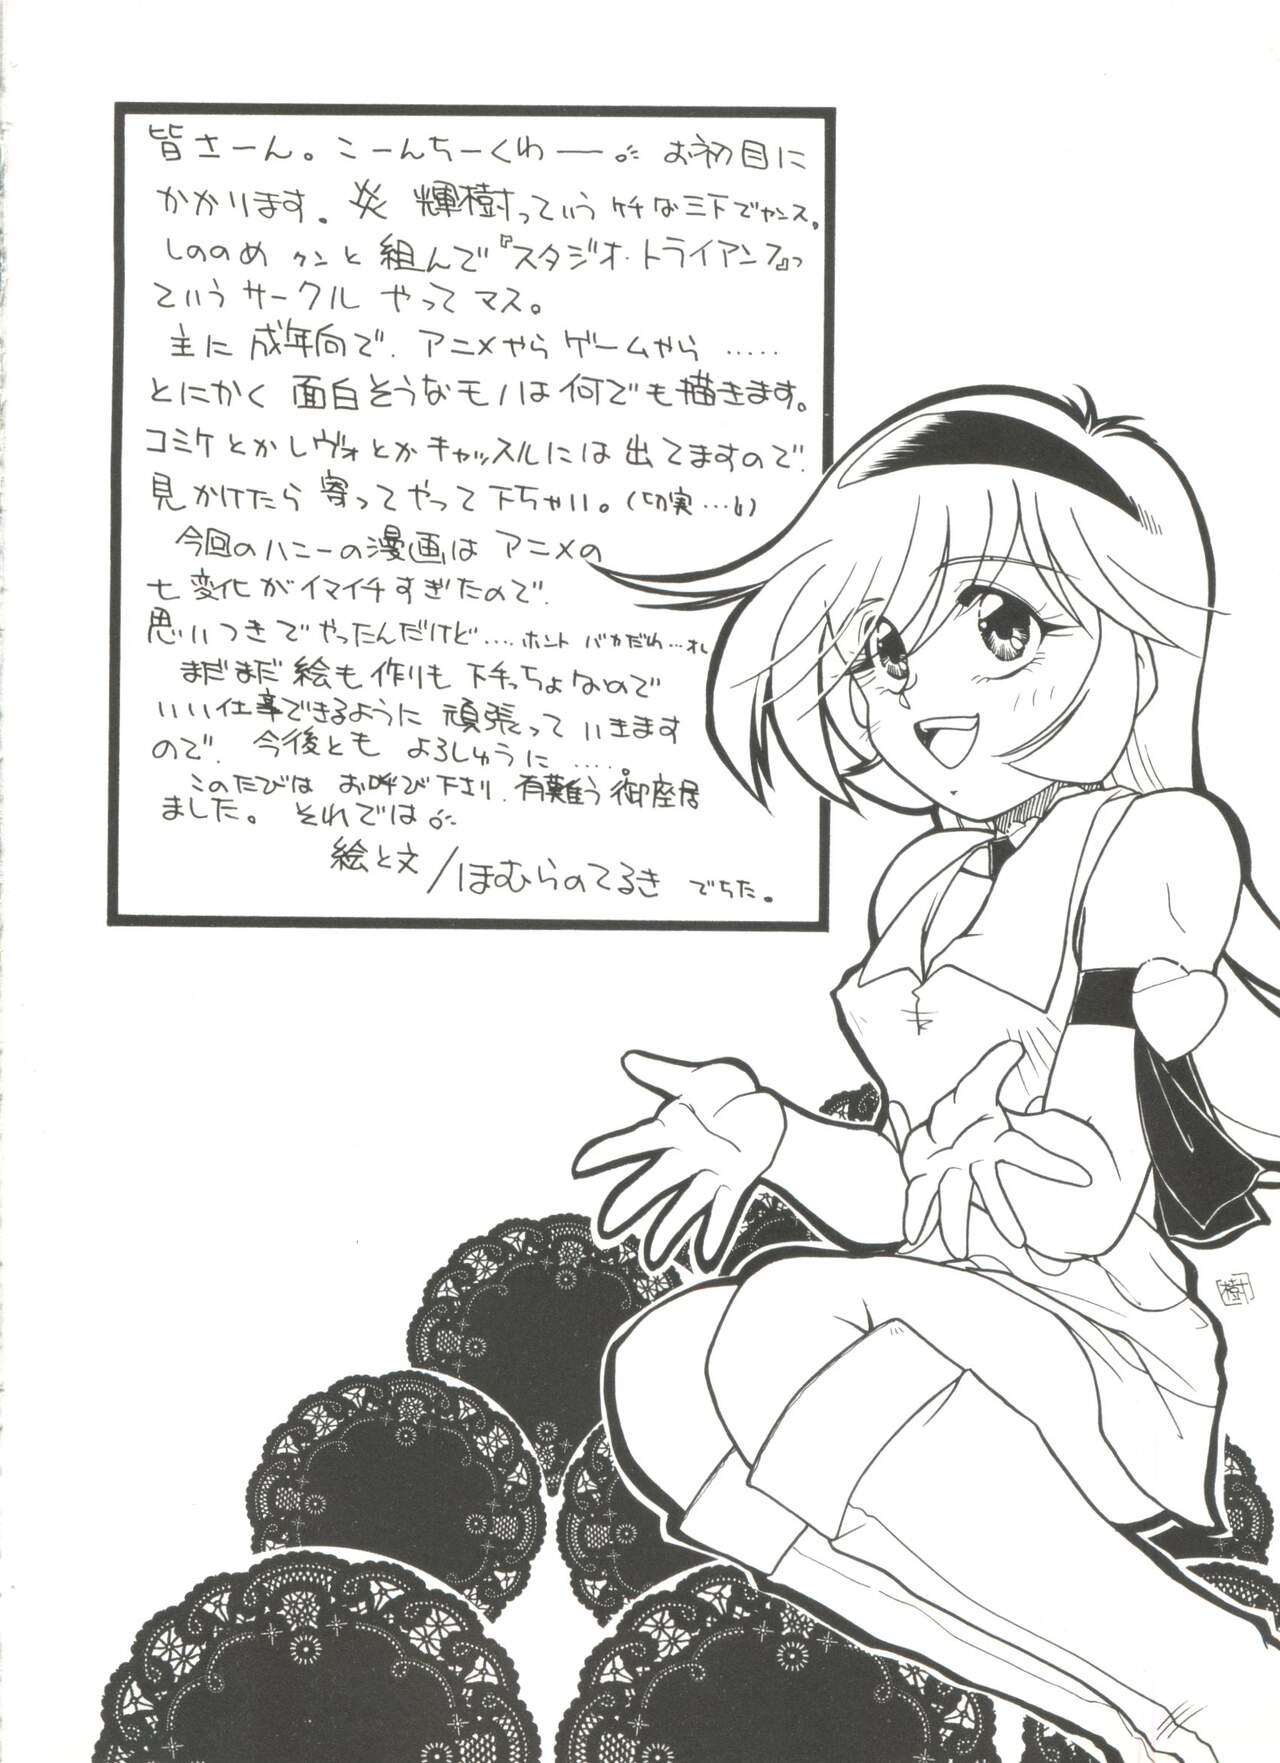 皆さーん。こーんちーくわー。お初目に
かかります。炎 輝樹っていうケチな三下でヤンス。
しののめクンと組んで『スタジオ・トライアング』っ
ていうサークルやってマス。
主に成年向で、アニメやらゲームやら……
とにかく面白そうなモノは何でも描きます。
コミケとかレヴォとかキャッスルには出てますので、
見かけたら寄ってやって下ちゃい。(切実…。)
今回のハニーの漫画はアニメの
七変化がイマイチすぎたので、
思いつきでやったんだけど……ホント バカだわ…オレ
まだまだ絵も作りも下手っちょなので
いい仕事できるように頑張っていきます
ので、今後とも よろしゅうに……。
このたびは お呼び下さり、有難う御座居
ました。それでは。
絵と文/ほむらのてるき でちた。
樹